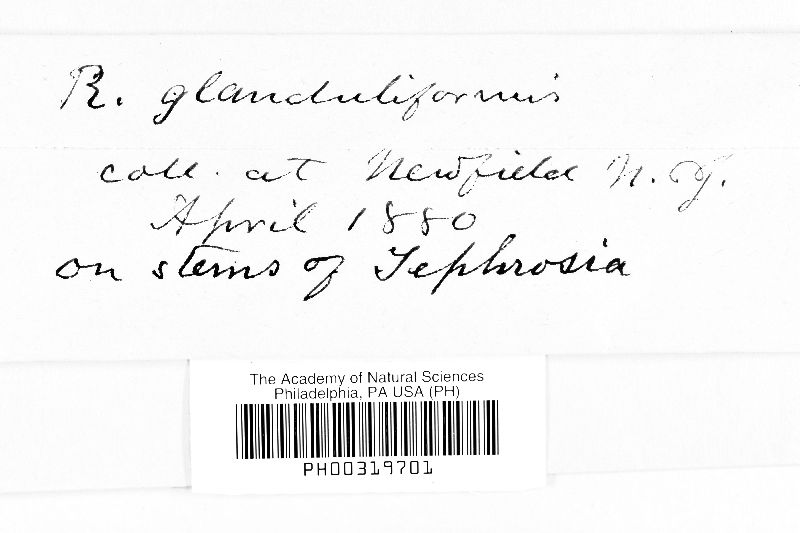 R. glanduliformis
coll. at Newfield N. J.
April 1880
on stems of Tephrosia
The Academy of Natural Sciences
Philadelphia, PA USA (PH)
PH00319701